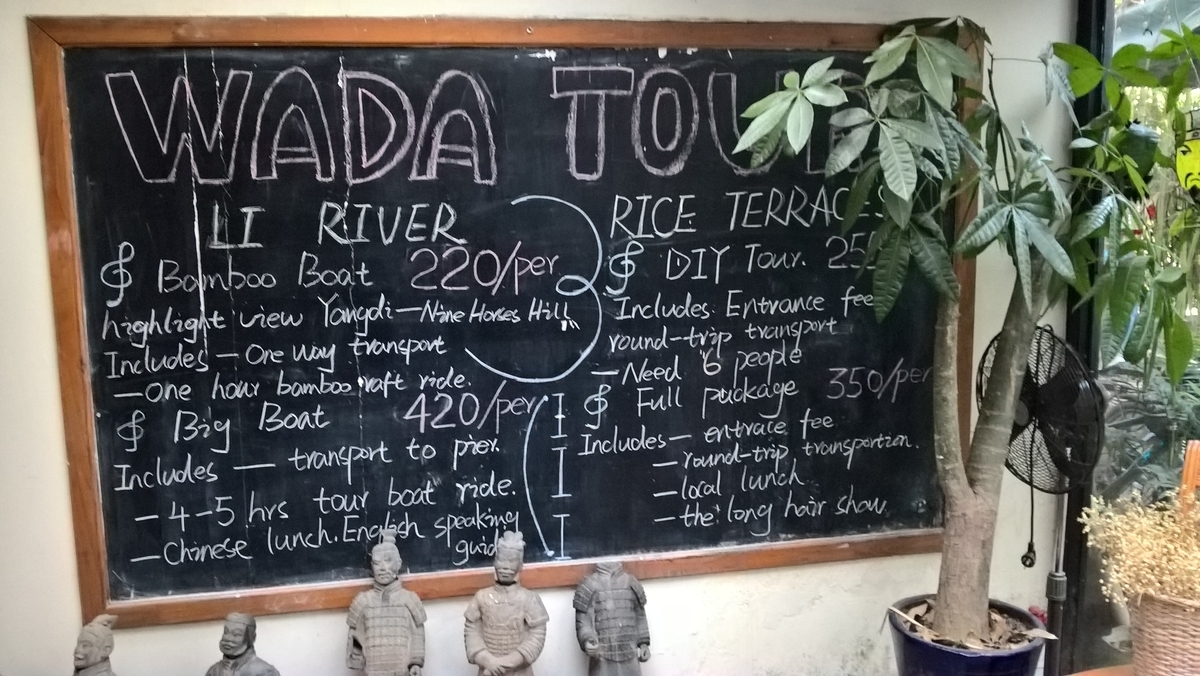 WADA TOU
LI RIVER
Bamboo Boat 220/per
highlight view Yangdi—Nine Horses Hill
Includes — One way transport
— One hour bamboo raft ride.
Big Boat 420/per
Includes — transport to pier.
— 4-5 hrs tour boat ride.
— Chinese lunch. English speaking
guide
RICE TERRACES
DIY Tour. 25
Includes: Entrance fee
round-trip transport
— Need 6 people
Full package 350/per
Includes — entrace fee
— round-trip transportion.
— local lunch
— the long hair show